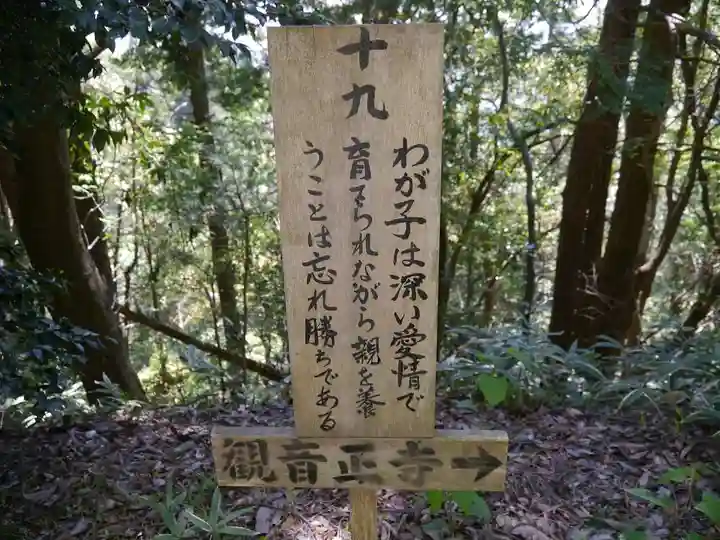 十九
わが子は深い愛情で
育てられながら親を養
うことは忘れ勝ちである
観音正寺→